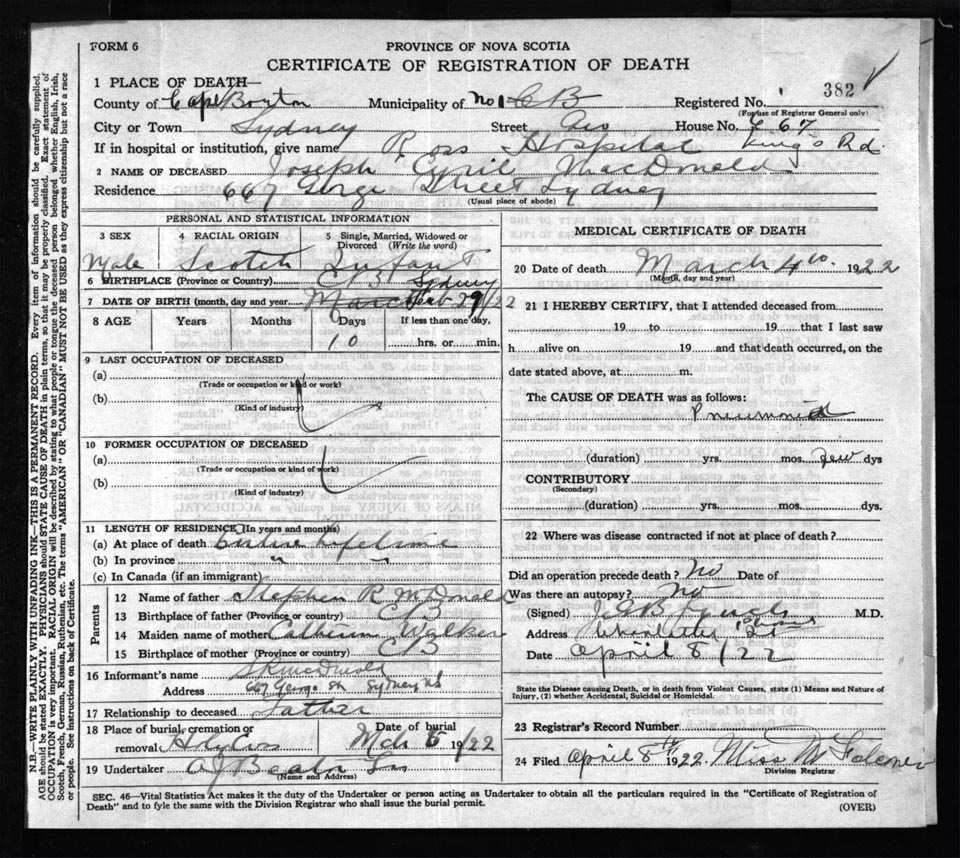 FORM 6
PROVINCE OF NOVA SCOTIA
CERTIFICATE OF REGISTRATION OF DEATH
382
1 PLACE OF DEATH—
County of Cape Breton Municipality of No 1 C B Registered No.
(For use of Registrar General only)
City or Town Sydney Street Geo House No. 667
If in hospital or institution, give name Ross Hospital King's Rd.
2 NAME OF DECEASED Joseph Cyril MacDonald
Residence 667 George Street Sydney
(Usual place of abode)
PERSONAL AND STATISTICAL INFORMATION
3 SEX 4 RACIAL ORIGIN 5 Single, Married, Widowed or Divorced (Write the word)
Male Scotch Infant
6 BIRTHPLACE (Province or Country) C B Sydney
7 DATE OF BIRTH (month, day and year) March Feb 29/22
8 AGE Years Months Days If less than one day,
10 hrs. or min.
9 LAST OCCUPATION OF DECEASED
(a)
(Trade or occupation or kind of work)
(b)
(Kind of industry)
10 FORMER OCCUPATION OF DECEASED
(a)
(Trade or occupation or kind of work)
(b)
(Kind of industry)
11 LENGTH OF RESIDENCE (In years and months)
(a) At place of death Entire lifetime
(b) In province " "
(c) In Canada (if an immigrant)
Parents
12 Name of father Stephen R McDonald
13 Birthplace of father (Province or Country) C B
14 Maiden name of mother Catherine Walker
15 Birthplace of mother (Province or country) C B
16 Informant's name S R McDonald
Address 667 George St Sydney NS
17 Relationship to deceased Father
18 Place of burial, cremation or removal Date of burial
Mch 5 19/22
19 Undertaker A J Beaton
(Name and Address)
MEDICAL CERTIFICATE OF DEATH
20 Date of death March 4th 1922
(Month, day and year)
21 I HEREBY CERTIFY, that I attended deceased from
19 to 19 that I last saw
h alive on 19 and that death occurred, on the
date stated above, at m.
The CAUSE OF DEATH was as follows:
Pneumonia
(duration) yrs. mos. few dys
CONTRIBUTORY
(Secondary)
(duration) yrs. mos. dys.
22 Where was disease contracted if not at place of death?
Did an operation precede death? No Date of
Was there an autopsy? No
(Signed) M.D.
Address St
Date April 8/22
State the Disease causing Death, or in death from Violent Causes, state (1) Means and Nature of Injury, (2) whether Accidental, Suicidal or Homicidal.
23 Registrar's Record Number
24 Filed April 8th 1922. Miss M
Division Registrar
SEC. 46—Vital Statistics Act makes it the duty of the Undertaker or person acting as Undertaker to obtain all the particulars required in the "Certificate of Registration of
Death" and to fyle the same with the Division Registrar who shall issue the burial permit.
(OVER)
N.B.—WRITE PLAINLY WITH UNFADING INK—THIS IS A PERMANENT RECORD. Every item of information should be carefully supplied.
AGE should be stated EXACTLY. PHYSICIANS should STATE CAUSE OF DEATH in plain terms, so that it may be properly classified. Exact statement of
OCCUPATION is very important. RACIAL ORIGIN will be described by stating to what people or tongue the deceased person belonged, whether English, Irish,
Scotch, French, German, Russian, Ruthenian, etc. The terms "AMERICAN" OR "CANADIAN" MUST NOT BE USED as they express citizenship but not a race
or people. See instructions on back of Certificate.